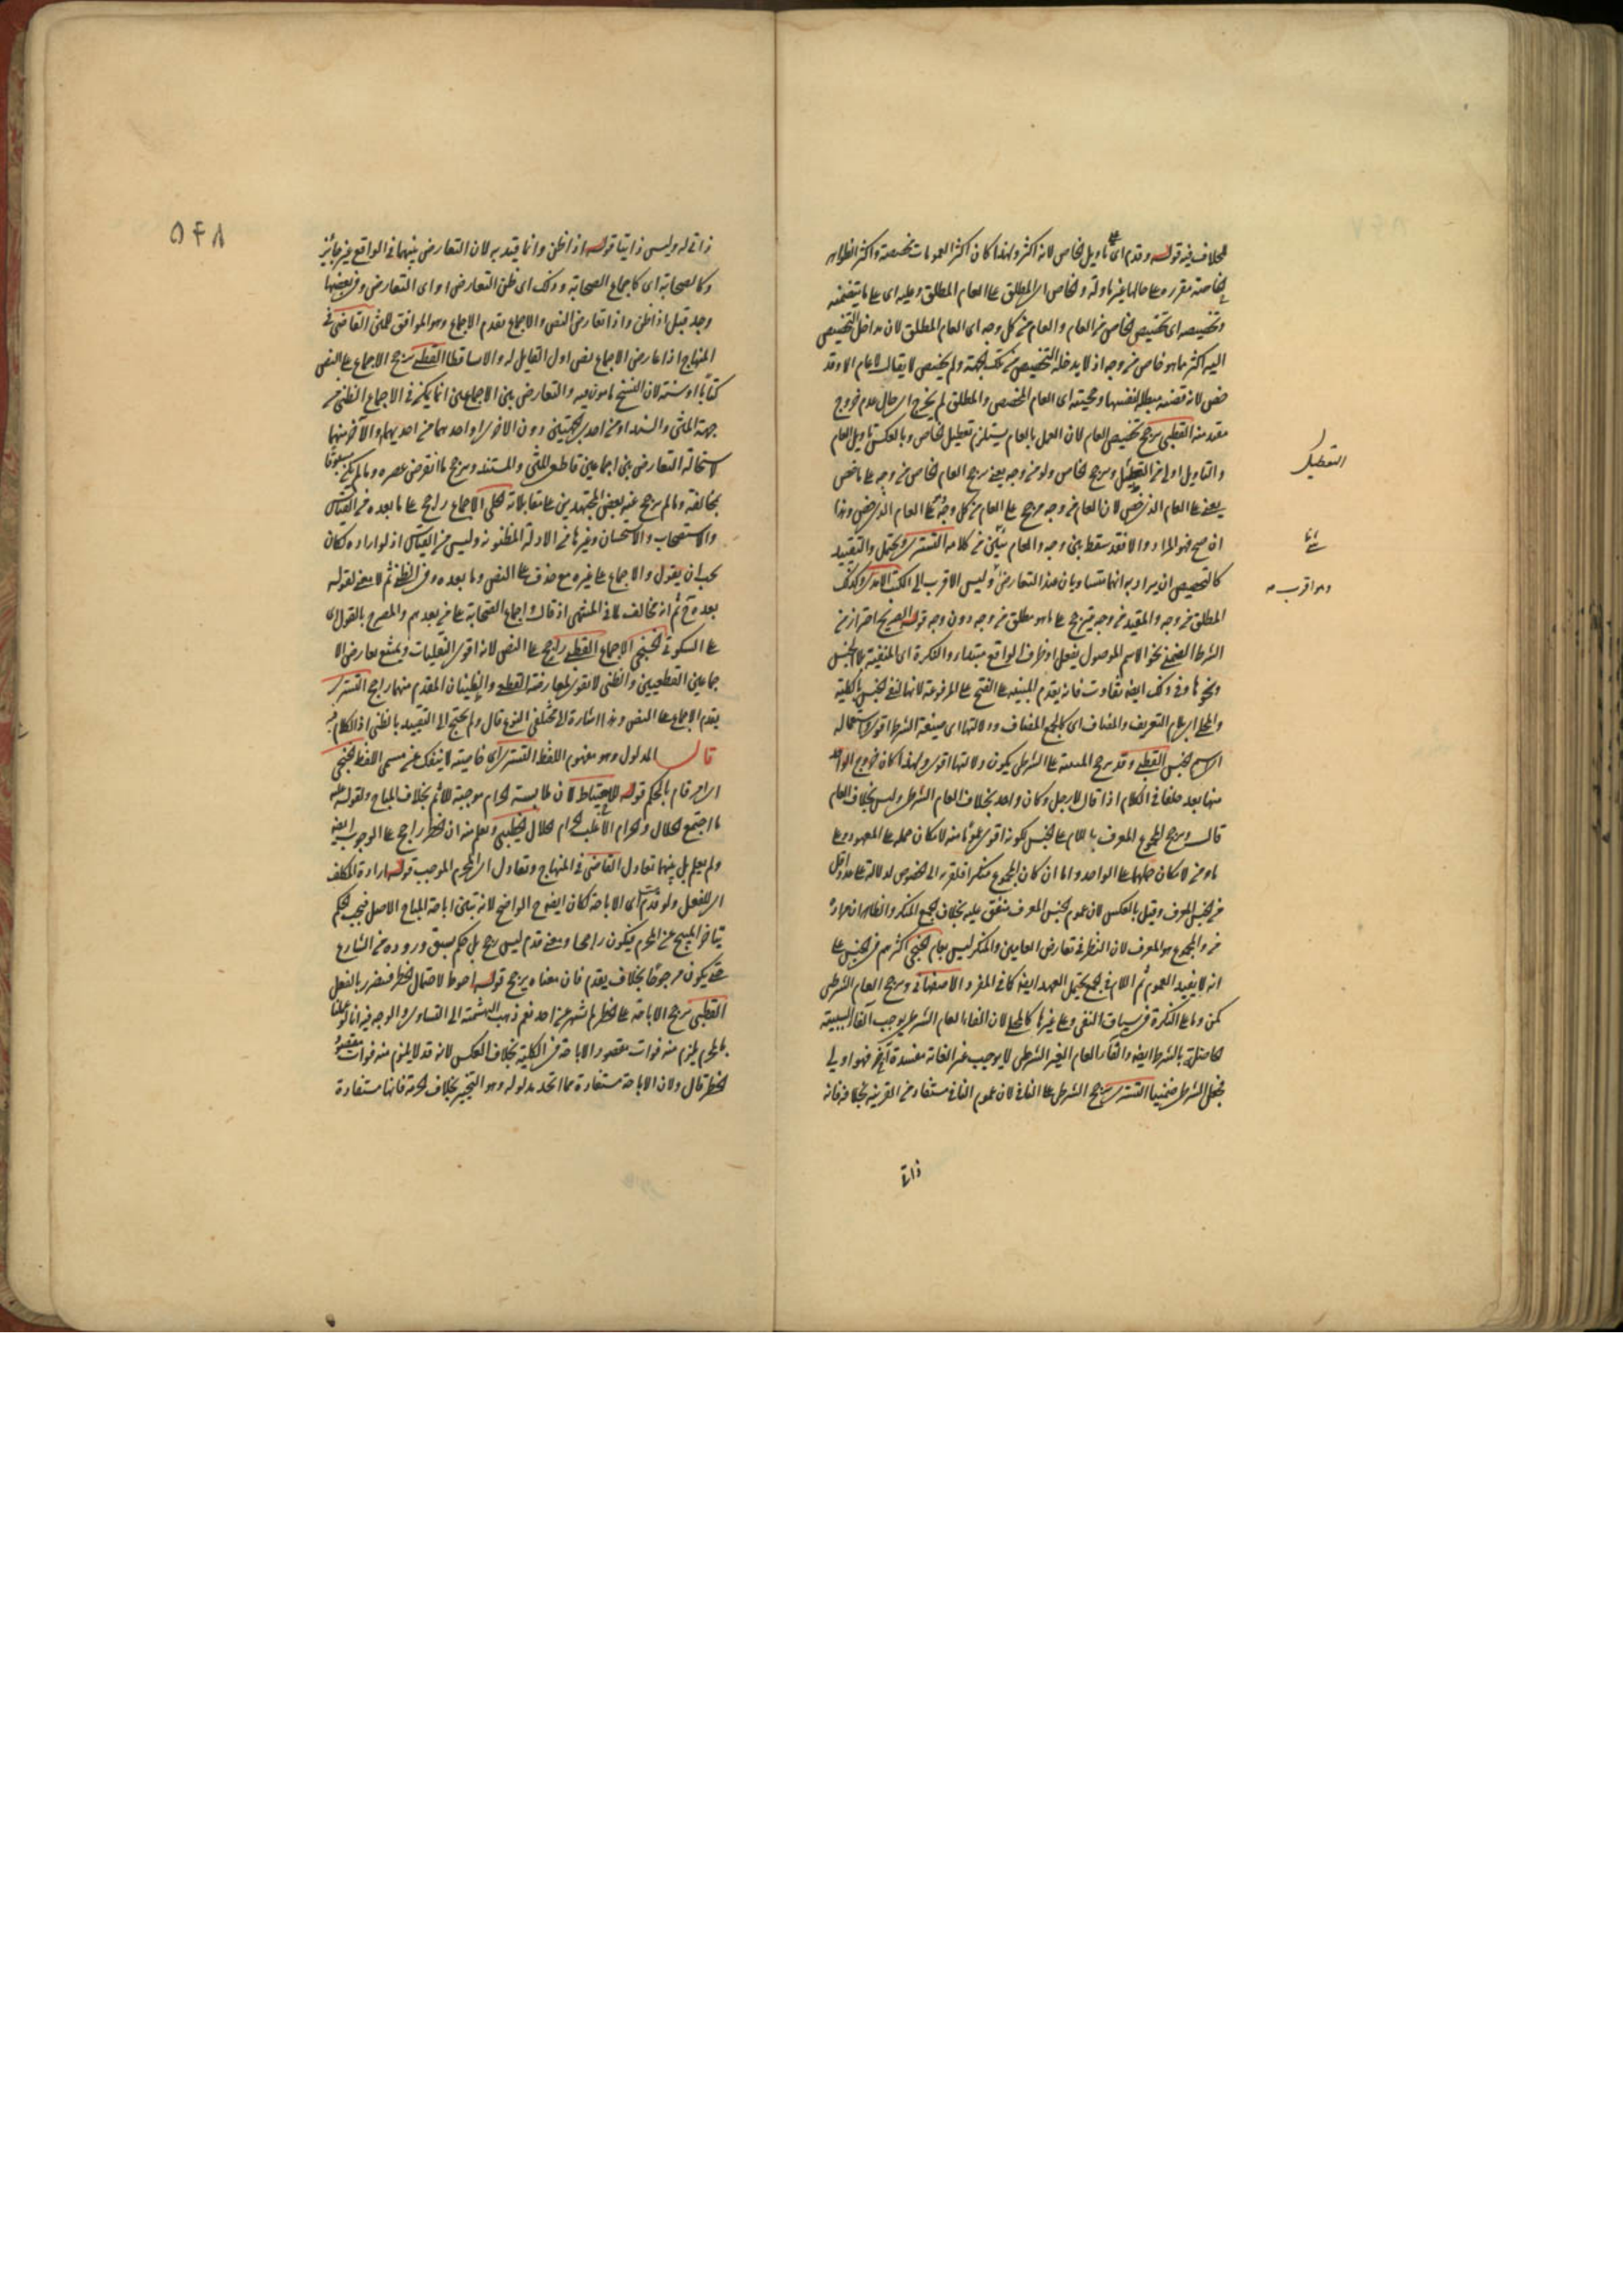 بخلاف فيه قوله وقدم اى تاويل الخاص لانه اكثر ولهذا كان اكثر العمومات مخصصة واكثر الظواهر
الخاصة مقررة على حالها غير ماولة والخاص اى المطلق على العام المطلق وعليه اى على ما يتضمنه
وتخصيصه اى تخصيص الخاص من العام والعام من كل وجه اى العام المطلق لان مداخل التخصيص
اليه اكثر مما هو خاص من وجه اذ لا يدخله التخصيص من تلك الجهة ولم يخص لا يقال لا عام الا وقد
خص لانه قضية مبطلة لنفسها وحجيته اى العام المخصص والمطلق لم يخرج
مقيد منه القطبى يرجح تخصيص العام لان العمل بالعام يستلزم تعطيل الخاص وبالعكس تاويل العام
والتاويل اولى من التعطيل ويرجح الخاص ولو من وجه يعنى يرجح العام الخاص من وجه على ما خص
يعنى على العام الذى خص لان العام من وجه مرجح على العام من كل وجه على العام الذى خص وهذا
ان صح فهو المراد والا فقد سقط بين وجه والعام شىء من كلامه التسترى ويحتمل والتقييد
كالتخصيص ان يراد به انهما متساويان عند التعارض وليس الاقرب الى الكتب وكذلك
المطلق من وجه والمقيد من وجه فيرجح على ما هو مطلق من وجه دون وجه قوله الصريح احتراز من
الشرط الضمنى نحو الاسم الموصول بفعل او ظرف الواقع مبتداء والنكرة اى المنفية بلا الجنس
ونحوها وفى ذلك ايضا تفاوت فانه يقدم المبنية على الفتح على المرفوعة لانها لنفى الجنس بالكلية
والمحلى اى بلام التعريف والمضاف اى كالجمع المضاف ودلالتها اى صيغة الشرط اقوى
اى اسم الجنس القطبى وقد يرجح على الشرطى بكون دلالتها اقوى ولهذا كان خروج الواحد
منها يعد خلفا فى الكلام اذا قال لا رجل وكان واحد بخلاف العام الشرطى وليس بخلاف العام
قال ويرجح الجموع المعرف باللام على الجنس لكونه اقوى عموما منه لامكان حمله على المعهود وعلى
ما ومن لامكان حملهما على الواحد واما ان كان الجموع منكرا فلقربه الى الخصوص لدلالته على عدد اقل
من الجنس المعرف وقيل بالعكس لان عموم الجنس المعرف متفق عليه بخلاف الجمع المنكر والظاهر ان مراده
من الجموع هو المعرف لان النظر فى تعارض العامين والمنكر ليس بعام الخنجى اكثرهم فى الجنس على
انه لا يفيد العموم ثم اللام فى الجمع يحتمل العهد ايضا كما فى المفرد الاصفهانى ويرجح العام الشرطى
كمن وما على النكرة فى سياق النفى وعلى غيرها كالمحلى لان الغاء العام الشرطى يوجب الغاء السببية
الحاصلة بالشرط ايضا والغاء العام الغير الشرطى لا يوجب غير الغائه مفسدة اخرى فهو اولى
فجعل الشرط ضمنيا التسترى يرجح الشرط على النافى لان عموم النافى مستفاد من القرينة بخلافه فانه
ذاتى
التعطيل
وهو اقرب
ذاتى له وليس ذاتيا قوله اذا ظن وانما قيد به لان التعارض بينهما فى الواقع غير جائز
وكالصحابة اى كاجماع الصحابة وذلك اى ظن التعارض او اى التعارض وفى بعضها
وجد قبل اذا ظن واذا تعارض النص والاجماع يقدم الاجماع وهو الموافق للمتن القاضى فى
المنهاج اذا عارض الاجماع نص اول القابل له والا تساقطا القطبى يرجح الاجماع على النص
كتابا او سنة لان النسخ مامون فيه والتعارض بين الاجماعين انما يمكن فى الاجماع الظنى من
جهة المتن والسند او من احدى الجهتين دون الاخرى او احدهما من احديهما والاخر منهما
لاستحالة التعارض بين اجماعين قاطعى المتن والمستند ويرجح ما انقرض عصره وما لم يكن مسبوقا
بمخالفة وما لم يرجع عنه بعض المجتهدين على مقابلاته الحلى الاجماع راجح على ما بعده من القياس
والاستصحاب والاستحسان وغيرها من الادلة المظنونة وليس من القياس اذ لو اراده لكان
يجب ان يقول والاجماع على غيره مع حذف على النص وما بعده وفى الظنى ثم لا معنى لقوله
بعده ثم انه مخالف لما فى المنتهى اذ قال واجماع الصحابة على من بعدهم والمصرح بالقول اى
على السكوتى الخنجى الاجماع القطعى راجح على النص لانه اقوى النقليات ويمتنع تعارض الا
جماعين القطعيين والظنى لا يقوى لمعارضة القطعى والظنيان المقدم منهما راجح التسترى
يقدم الاجماع على النص وهذا اشارة الى مختلفى النوع قال ولم يحتج الى التقييد بالظنى اذ الكلام فيه
قال المدلول وهو مفهوم اللفظ التسترى اى خاصيته لا ينفك عن مسمى اللفظ الخنجى
اى امر قام بالحكم قوله للاحتياط لان ملابسة الحرام موجبة للاثم بخلاف المباح ولقوله عليه
ما اجتمع الحلال والحرام الا غلب الحرام الحلال الخطيبى وعلم منه ان الحظر راجح على الوجوب ايضا
ولم يعلم بل بينهما تعادل القاضى فى المنهاج وتعادل اى المحرم الموجب قوله ارادة المكلف
اى للفعل ولو قدمت اى الاباحة لكان ايضاح الواضح لانه تبين اباحة المباح الاصل فيجب الحكم
بتاخر المبيح عن المحرم فيكون راجحا ومعنى قدم ليس رجح بل حكم بسبق وروده من الشارع
حتى يكون مرجوحا بخلاف يقدم فان معناه يرجح قوله احوط لاحتمال الحظر فيتضرر بالفعل
القطبى يرجح الاباحة على الحظر لم يشتهر عن احد نعم ذهب ابو هاشم الى التساوى والوجه فيه انا لو عملنا
بالمحرم يلزم منه فوات مقصود الاباحة من الكلية بخلاف العكس لانه قد لا يلزم منه فوات مقصود
الحظر قال ولان الاباحة مستفادة مما اتحد مدلوله وهو التخيير بخلاف الحرمة فانها مستفادة
٥٤٨